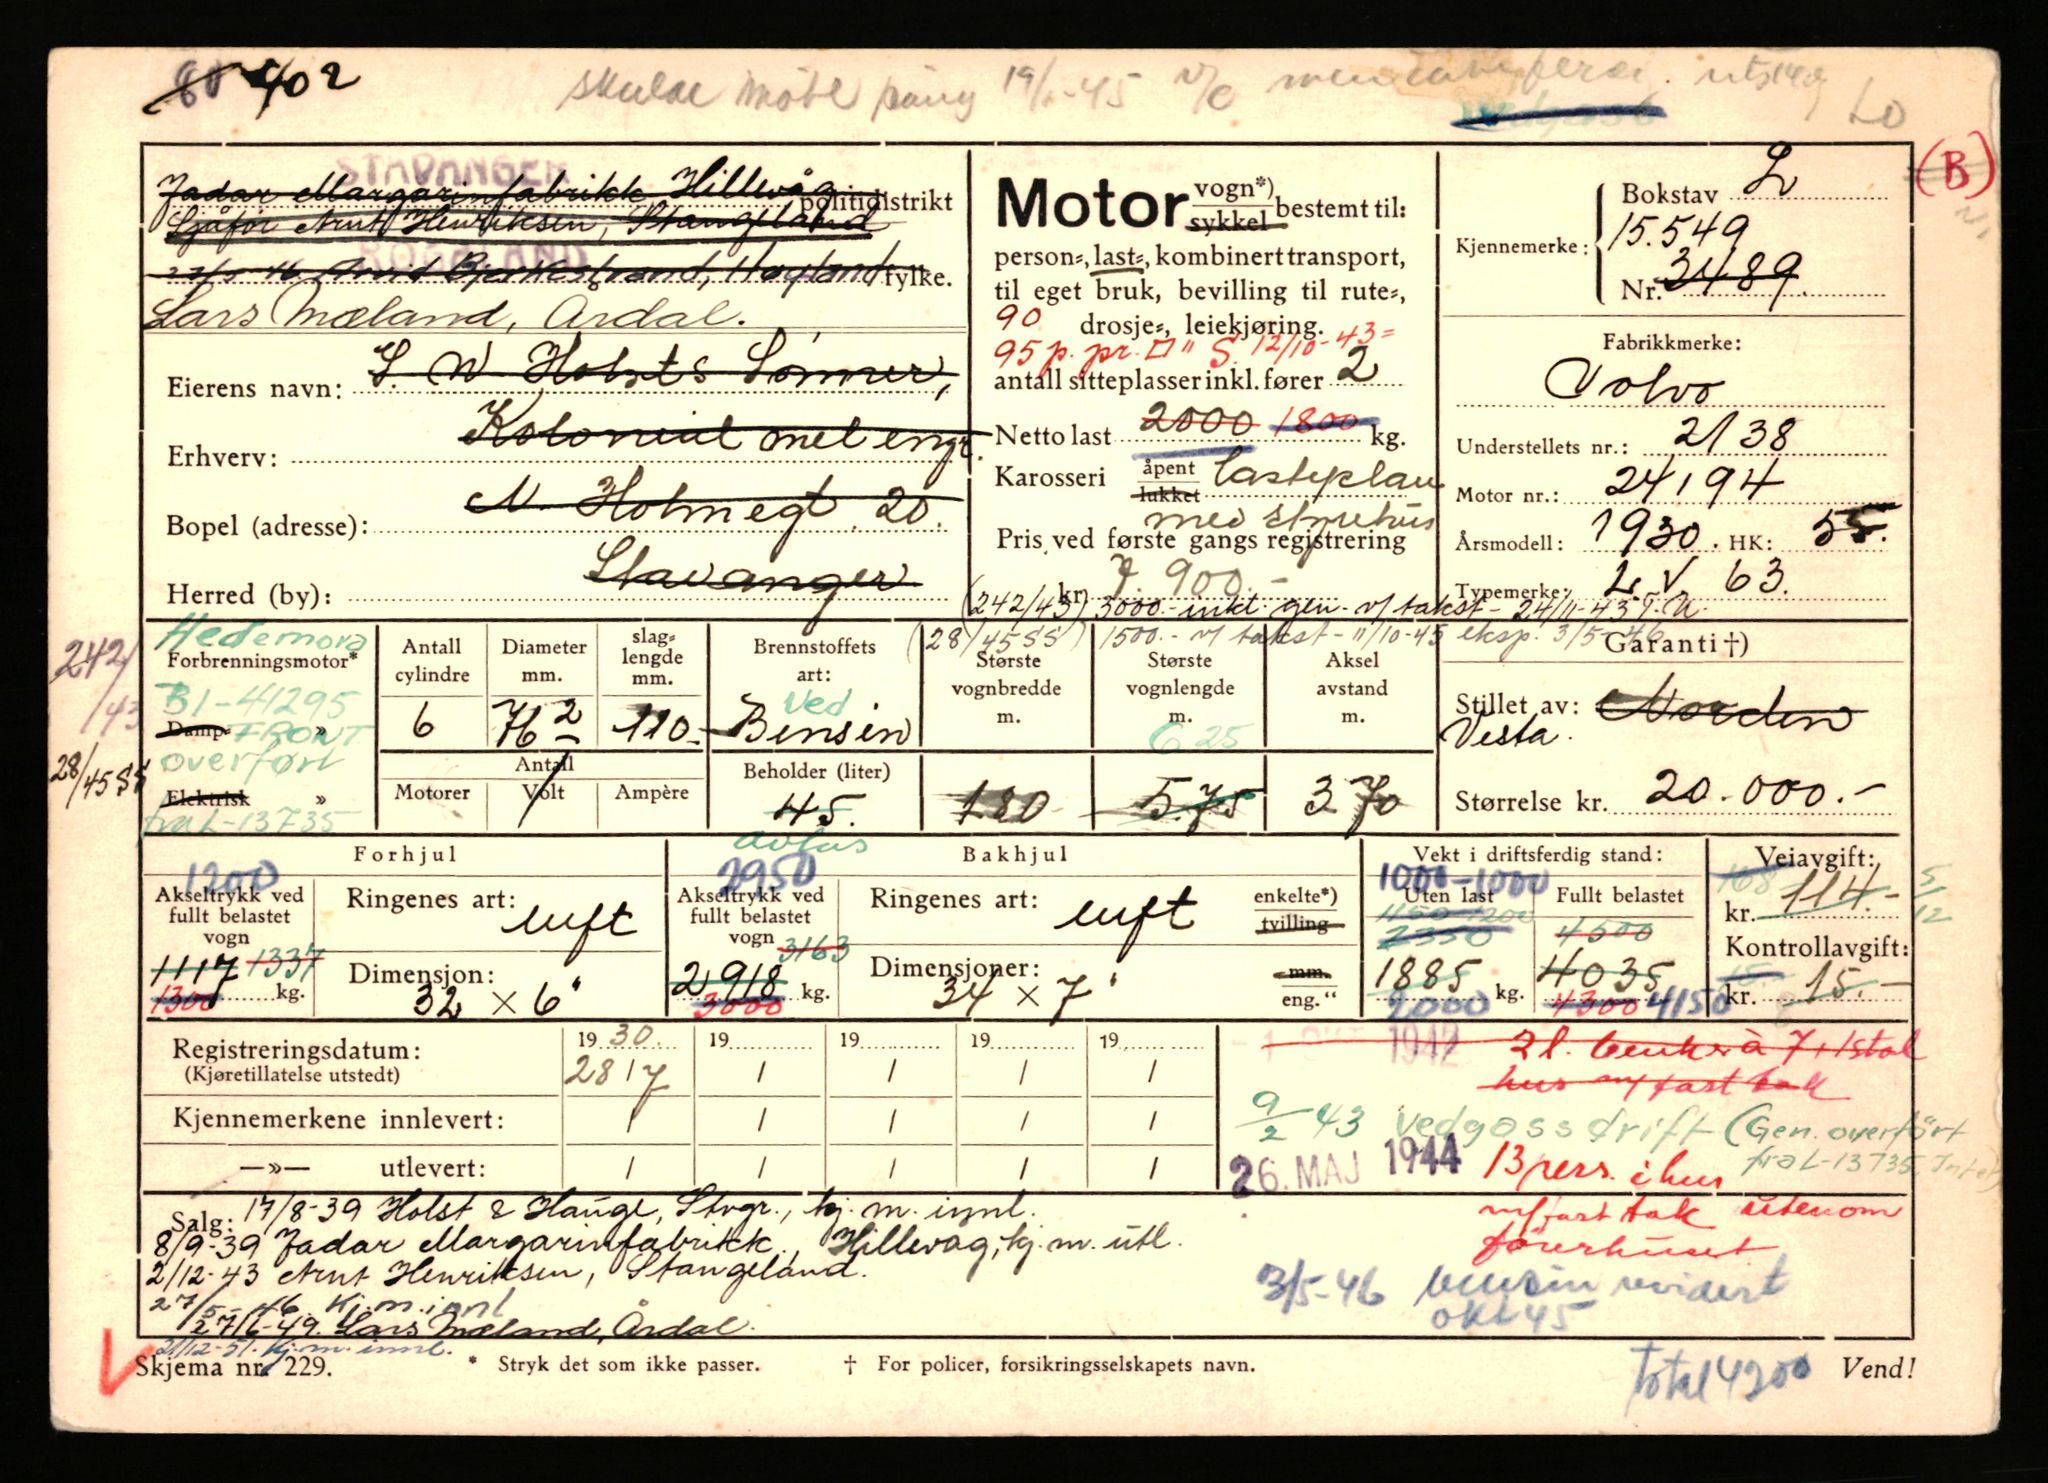 80 402
skulde møte 19/1-45
LO
(B)
STAVANGER politidistrikt
Jadar Margarinfabrikk Hillevåg
Sjåfør Arnt Henriksen, Stangeland
ROGALAND fylke.
27/5-46 Arvid Bjerkestrand, Høyland
Lars Mæland, Årdal.
Eierens navn: S. W. Holsts Sønner,
Erhverv: Kolonial mel engr.
Bopel (adresse): N. Holmegt. 20.
Herred (by): Stavanger
Motor vogn*) sykkel bestemt til:
person-, last-, kombinert transport,
til eget bruk, bevilling til rute-,
drosje-, leiekjøring.
90
95 p. pr. □" S. 12/10-43=
antall sitteplasser inkl. fører 2
Netto last 2000 1800 kg.
Karosseri åpent lukket lasteplan
med styrehus
Pris ved første gangs registrering
kr. 7.900.-
(242/43) 3000.- inkl gen. v/ takst - 24/11-43 T.U.
(28/45SS) 1500.- v/ takst - 11/10-45 eksp. 3/5-46
Kjennemerke: Bokstav L
15.549
Nr. 3489
Fabrikkmerke:
Volvo
Understellets nr.: 2138
Motor nr.: 24194
Årsmodell: 1930. HK: 55.
Typemerke: L.V. 63.
Garanti †)
Stillet av: Norden
Vesta.
Størrelse kr. 20.000.-
242/43
28/45 SS
Hedemora
Forbrenningsmotor*
B1-41295
Damp- »
FRONT
overført
Elektrisk »
fra L-13735
Antall cylindre 6
Diameter mm. 76 2
slaglengde mm. 110-
Brennstoffets art: Ved
Bensin
Største vognbredde m. 180
Største vognlengde m. 625
5.75
Aksel avstand m. 370
Antall
Motorer Volt Ampère
Beholder (liter) 45.
Forhjul
1200
Akseltrykk ved fullt belastet vogn
1117 1337
1300 kg.
Ringenes art: luft
Dimensjon: 32 × 6"
Bakhjul
2950
Akseltrykk ved fullt belastet vogn 3163
2918 kg.
3000
Ringenes art: luft
Dimensjoner: 34 × 7"
enkelte*)
tvilling
mm.
eng."
Vekt i driftsferdig stand:
1000-1000
Uten last Fullt belastet
2350 4500
1885 kg. 4035
2000 4300 4150
Veiavgift:
168
kr. 114.- 5/12
Kontrollavgift:
15.
kr. 15.-
Registreringsdatum:
(Kjøretillatelse utstedt)
1930. 19 19 19 19
28/7 / / / /
Kjennemerkene innlevert: / / / / /
—»— utlevert: / / / / /
1942 2 l. benker à 7, 1 stol
hus m/fast tak
9/2 43 Vedgassdrift (Gen. overført
fra L-13735.
26. MAJ 1944 13 pers. i hus
m/fast tak utenom
førerhuset
3/5-46 bensin revidert
okt 45
Salg: 17/8-39 Holst & Hauge, Stvgr., kj. m. innl.
8/9-39 Jadar Margarinfabrikk, Hillevåg, kj. m. utl.
2/12-43 Arnt Henriksen, Stangeland.
27/5-46. kj. m. innl
27/6-49. Lars Mæland, Årdal.
21/12-51. kj. m. innl.
Skjema nr. 229. * Stryk det som ikke passer. † For policer, forsikringsselskapets navn.
Total 4200
Vend!